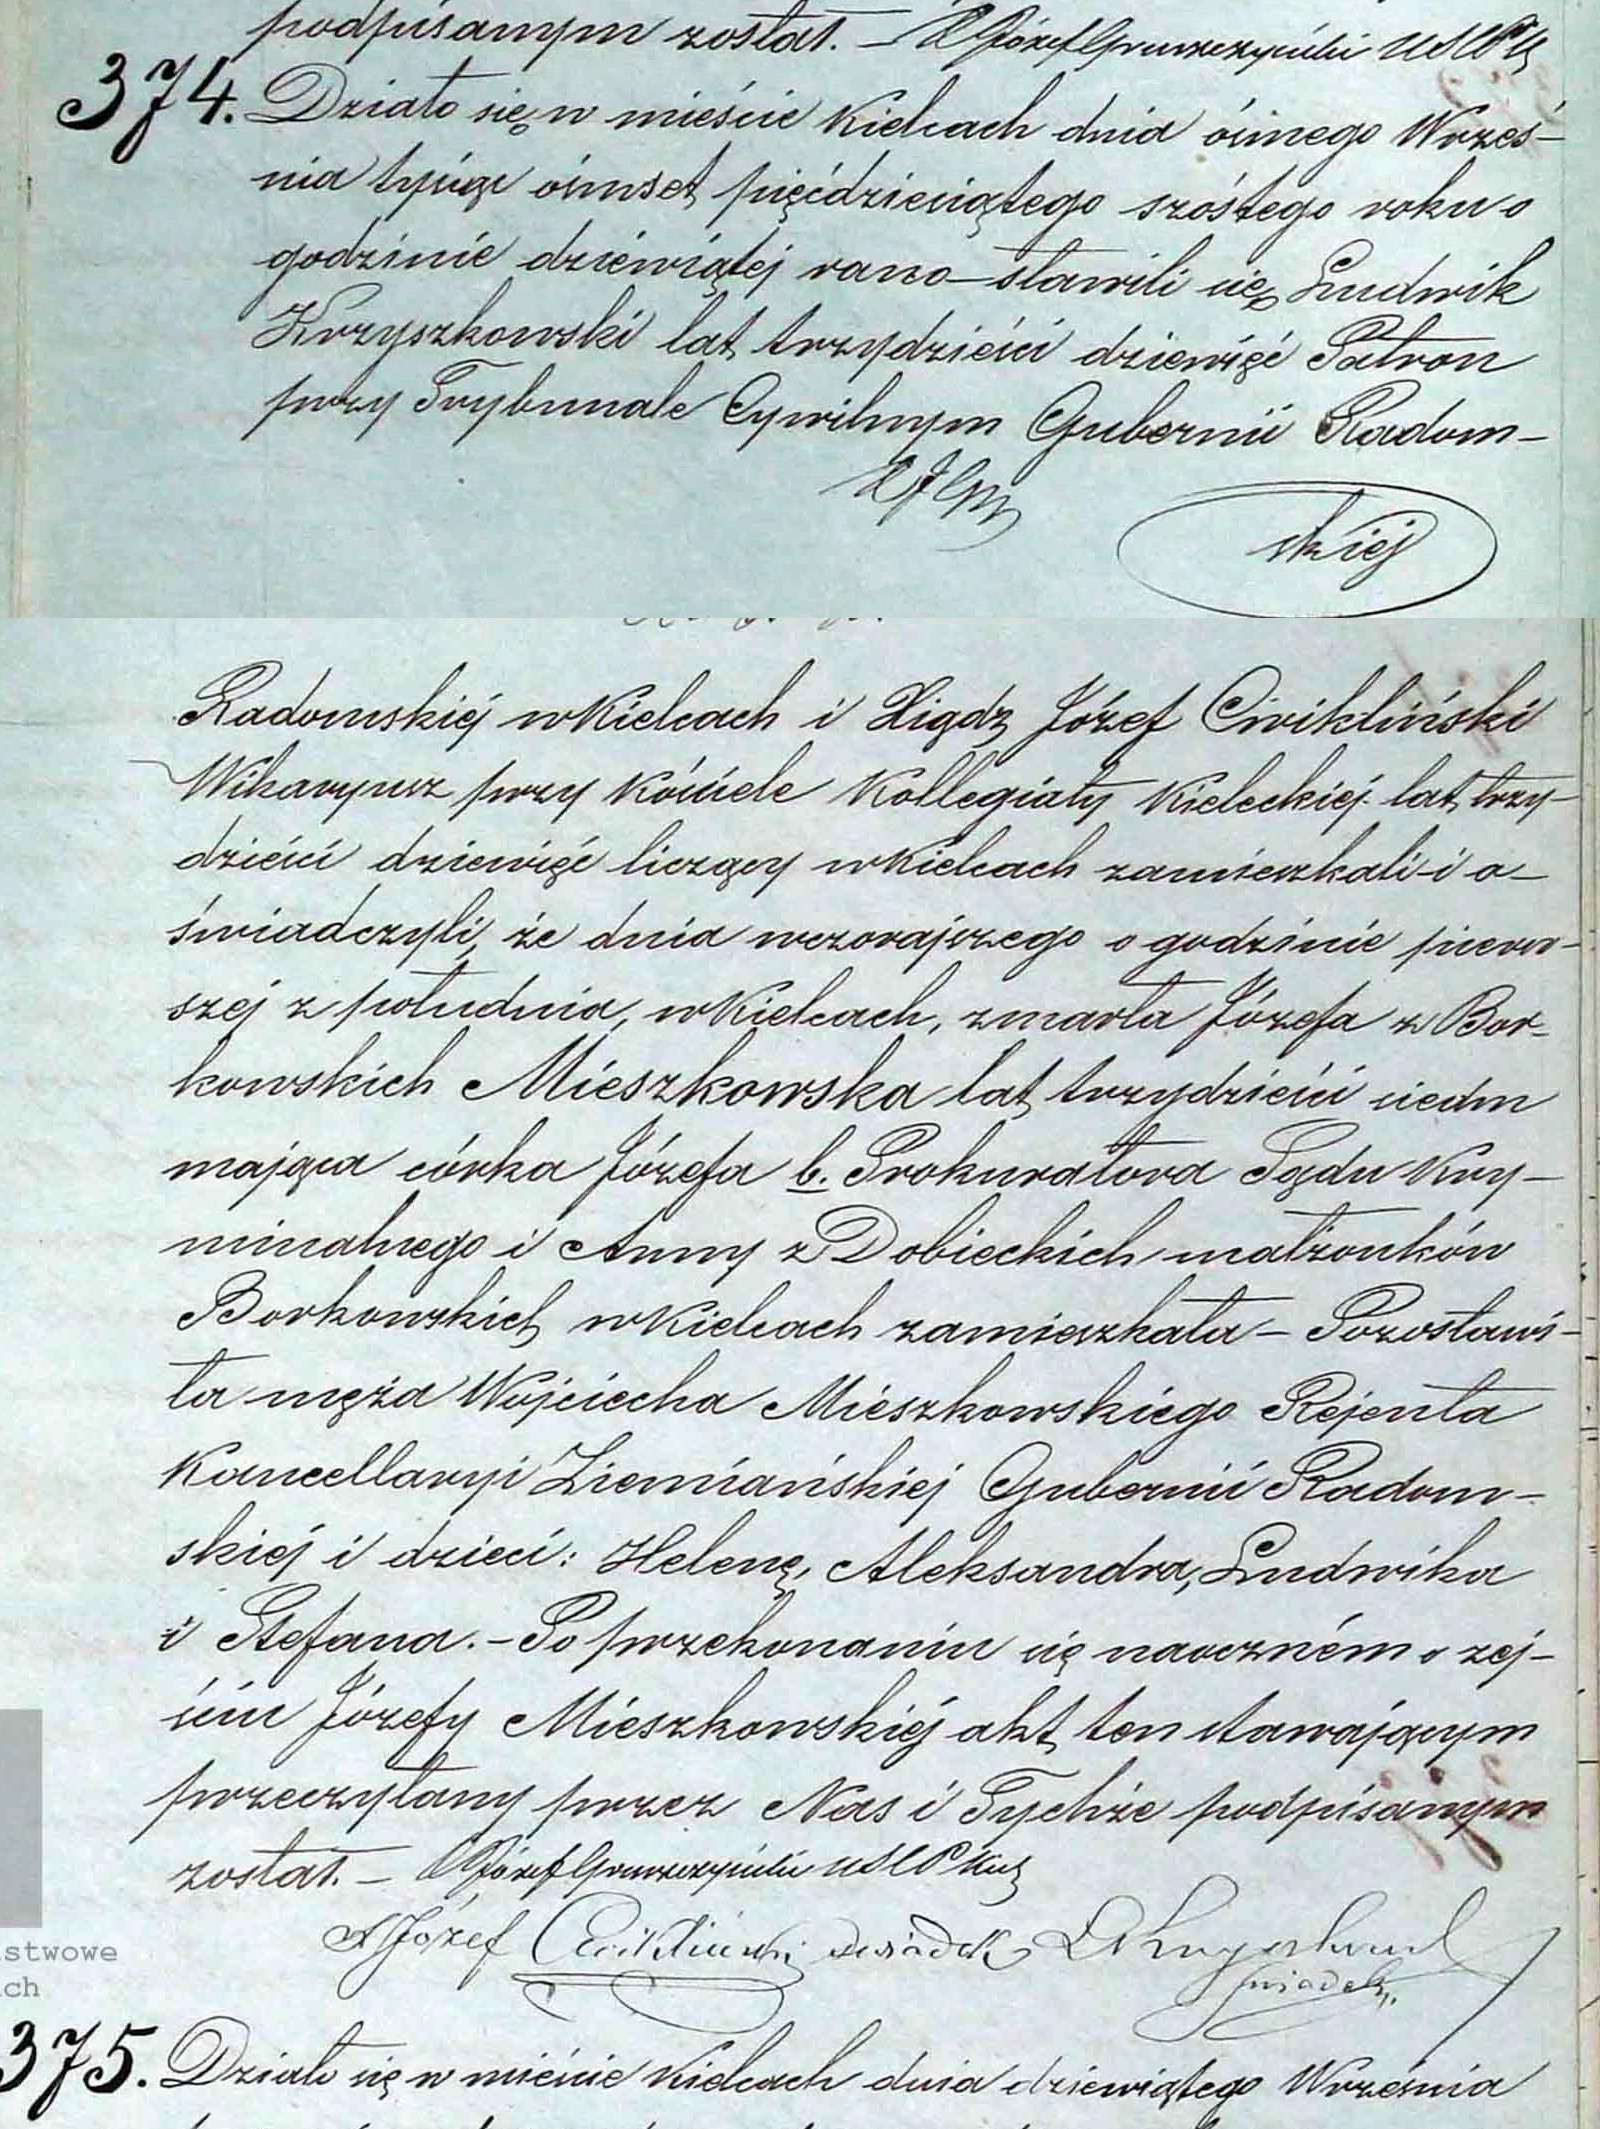 podpisanym został. — X Józef Gruszczyński USCPK
374. Działo się w mieście Kielcach dnia ósmego Wrześ-
nia tysiąc ośmset pięćdziesiątego szóstego roku o
godzinie dziewiątej rano — stawili się Ludwik
Krzyszkowski lat trzydzieści dziewięć Patron
przy Trybunale Cywilnym Gubernii Radom-
XJG
skiej
Radomskiéj w Kielcach i Xiądz Józef Cwikliński
Wikaryusz przy Kościele Kollegiaty Kieleckiéj lat trzy-
dzieści dziewięć liczący w Kielcach zamieszkali i o-
świadczyli, że dnia wczorajszego o godzinie pierw-
széj z południa, w Kielcach, zmarła Józefa z Bor-
kowskich Mieszkowska lat trzydzieści siedm
mająca córka Józefa b. Prokuratora Sądu Kry-
minalnego i Anny z Dobieckich małżonków
Borkowskich w Kielcach zamieszkała — Pozostawi-
ła męża Wojciecha Mieszkowskiego Rejenta
Kancellaryi Ziemiańskiéj Gubernii Radom-
skiéj i dzieci: Helenę, Aleksandra, Ludwika
i Stefana. — Po przekonaniu się naoczném o zej-
ściu Józefy Mieszkowskiéj akt ten stawającym
przeczytany przez Nas i Tychże podpisanym
został. — X Józef Gruszczyński USCPK
X Józef Cwikliński swiadek LKrzyszkowski
swiadek
stwowe
ch
375. Działo się w mieście Kielcach dnia dziewiątego Września